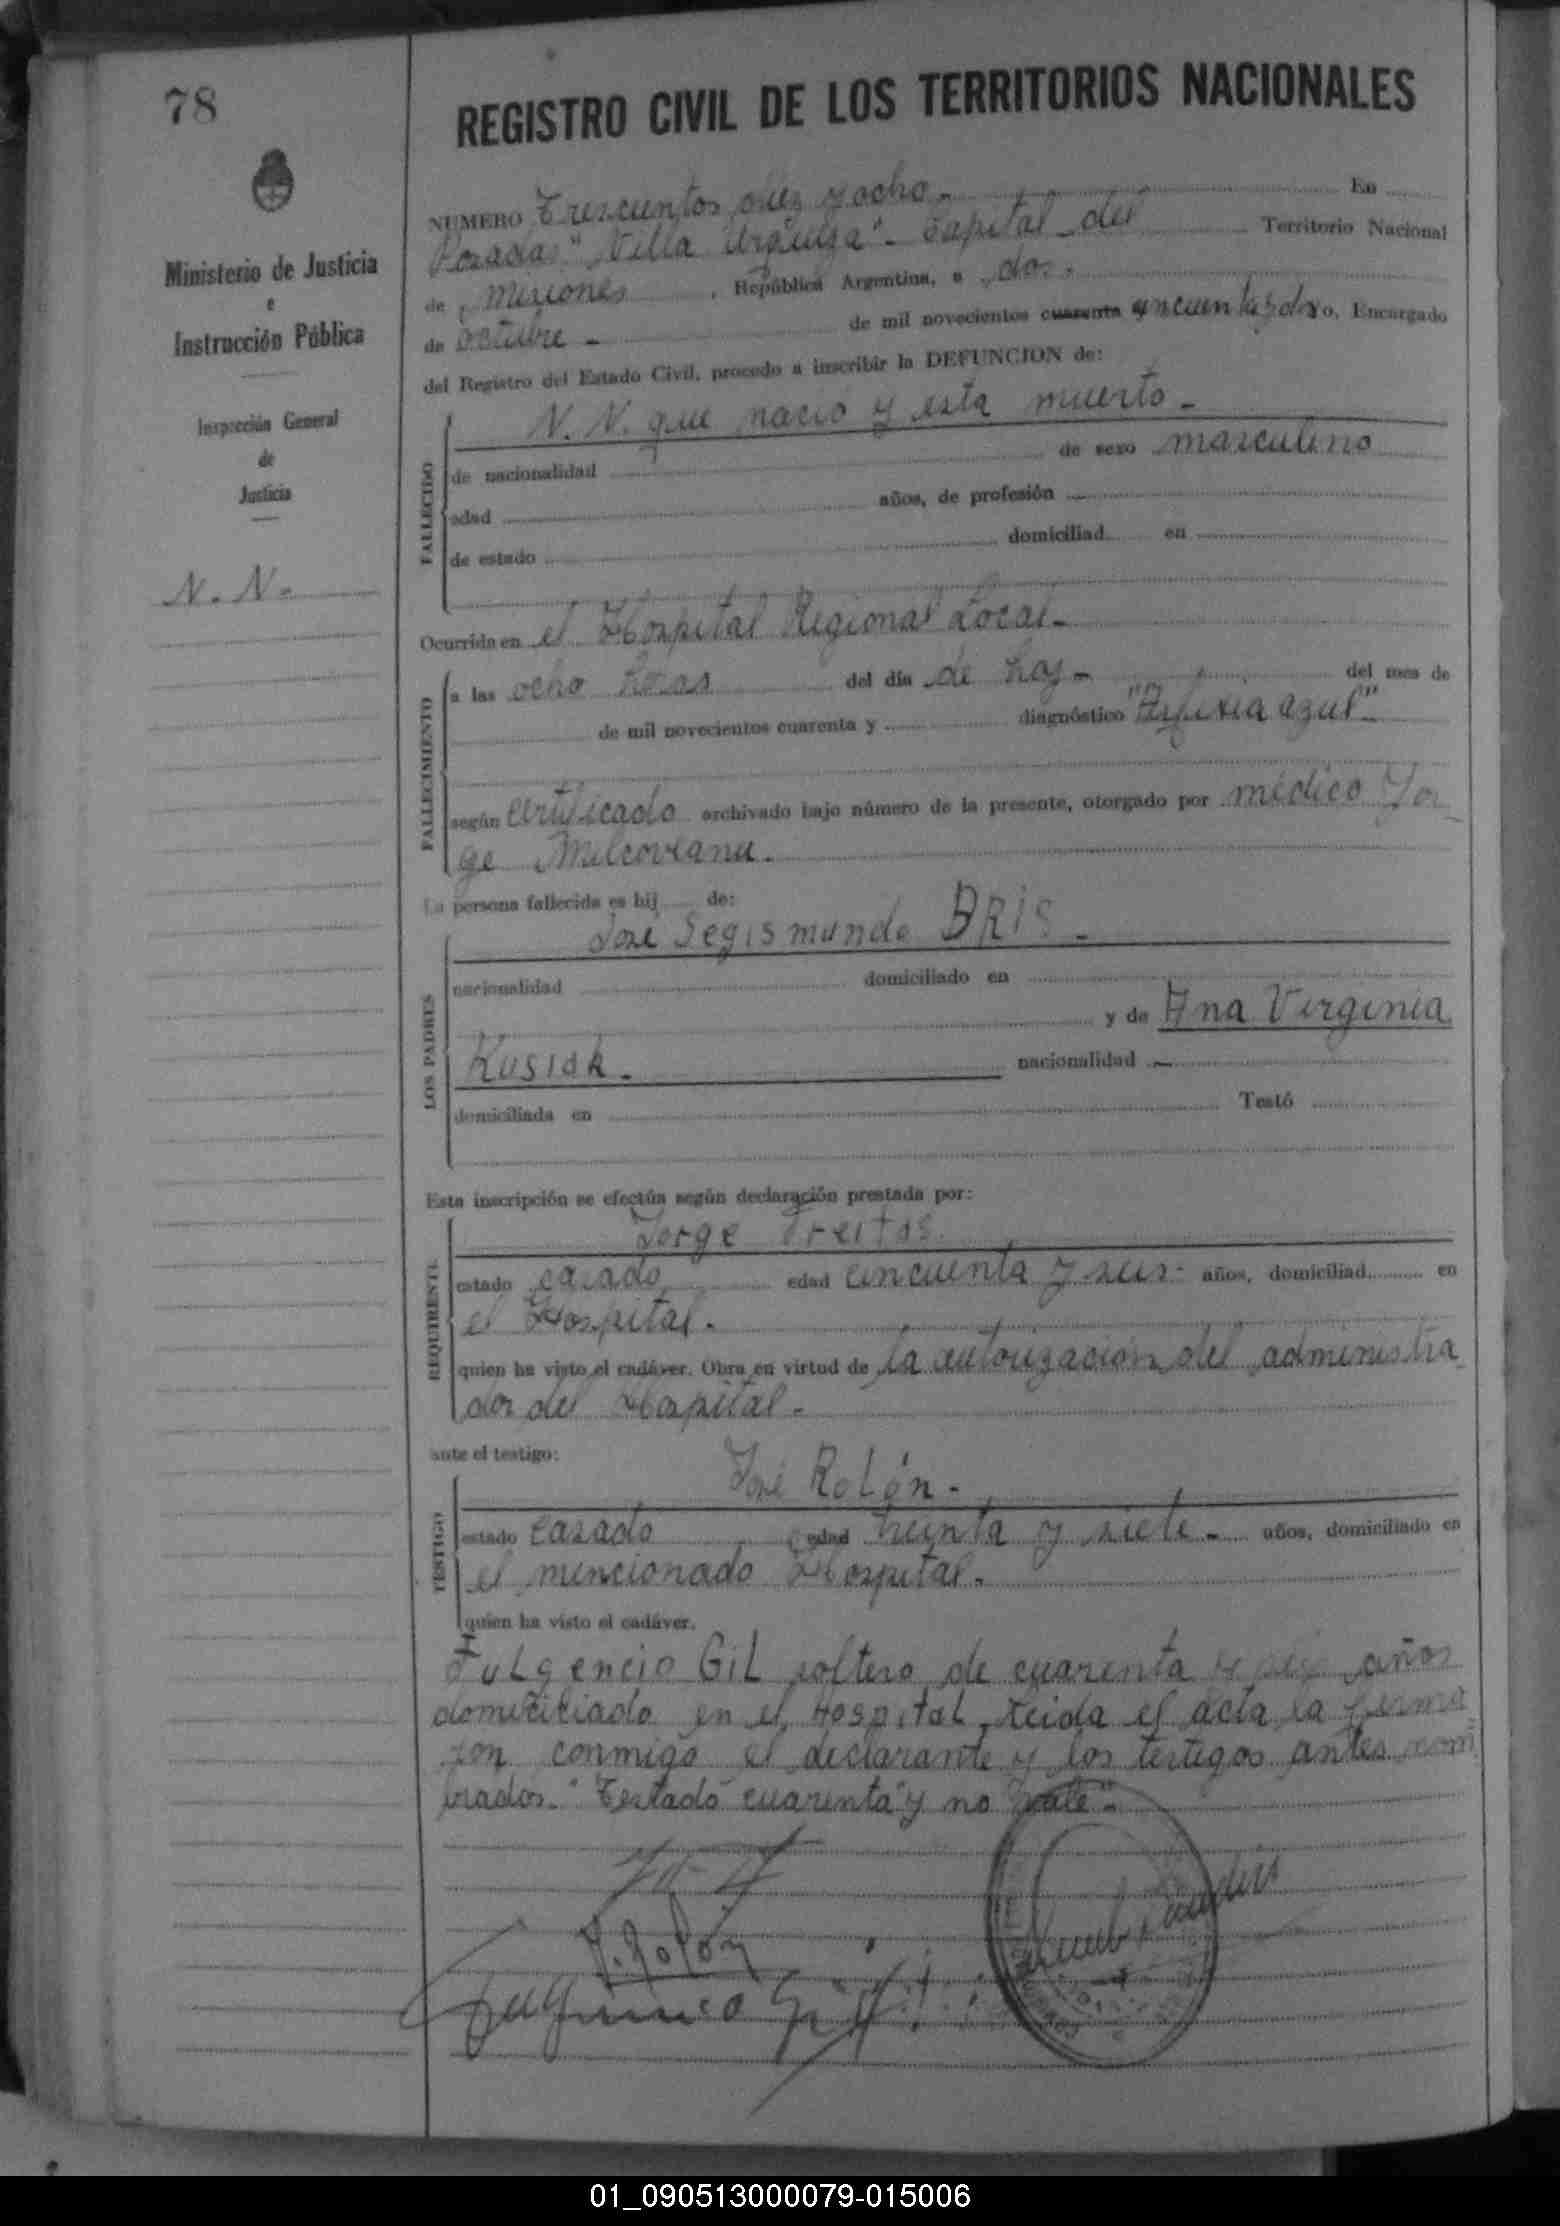 78
REGISTRO CIVIL DE LOS TERRITORIOS NACIONALES
Ministerio de Justicia
e
Instrucción Pública
Inspección General
de
Justicia
N. N.
NUMERO Trescientos diez y ocho.- En
Posadas "Villa Urquiza" - Capital del Territorio Nacional
de Misiones, República Argentina, a dos.
de octubre - de mil novecientos cuarenta y cincuenta y dos o, Encargado
del Registro del Estado Civil, procedo a inscribir la DEFUNCION de:
FALLECIDO
N. N. que nacio y esta muerto -
de nacionalidad de sexo masculino
edad años, de profesión
de estado domiciliad en
Ocurrida en el Hospital Regional Local -
FALLECIMIENTO
a las ocho horas del día de hoy - del mes de
de mil novecientos cuarenta y diagnóstico "Asfixia azul"
según certificado archivado bajo número de la presente, otorgado por médico Jor
ge Milcoveanu.
La persona fallecida es hij de:
LOS PADRES
José Segismundo BRIS -
nacionalidad domiciliado en
y de Ana Virginia
Kusiak. nacionalidad -
domiciliada en Testó
Esta inscripción se efectúa según declaración prestada por:
REQUIRENTE
Jorge Freitas
estado casado edad cincuenta y seis - años, domiciliad en
el Hospital.
quien ha visto el cadáver. Obra en virtud de la autorización del administra
dor del Hospital -
ante el testigo:
TESTIGO
José Rolón -
estado casado edad treinta y siete - años, domiciliado en
el mencionado Hospital -
quien ha visto el cadáver.
Fulgencio Gil soltero de cuarenta y años
domiciliado en el Hospital, Leida el acta la firma
ron conmigo el declarante y los testigos antes nom
brados. "Testado cuarenta" y no vale" -
J. Rolón
Fulgencio Gil
01_090513000079-015006